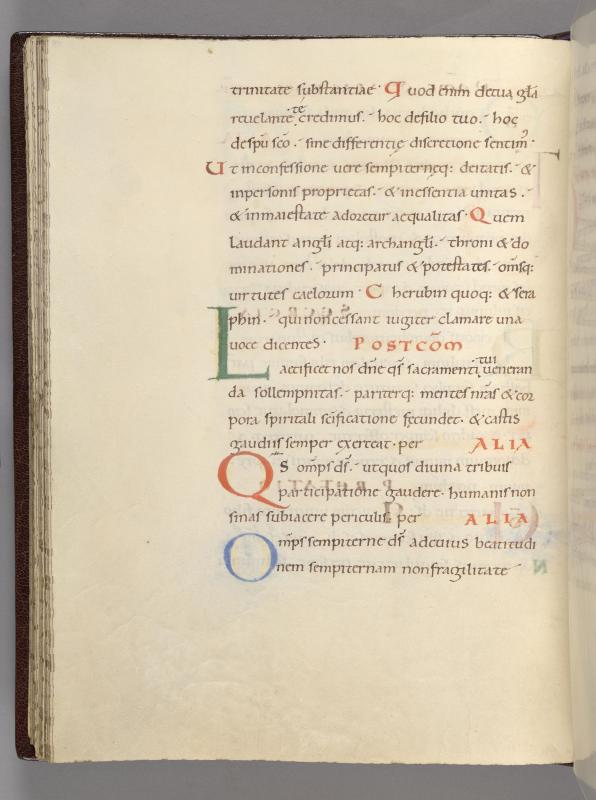 trinitate substantiae. Quod enim de tua gl̄a
reuelante te credimus. hoc de filio tuo. hoc
de sp̄u sc̄o. sine differentię discretione sentim᾽.
Ut in confessione uere sempiterneq: deitatis. &
in personis proprietas. & in essentia unitas.
& in maiestate adoretur aequalitas. Quem
laudant angl̄i atq: archangl̄i. throni & do
minationes. principatus & potestates. om̄sq:
uirtutes caelorum. Cherubin quoq: & sera
phin. qui non cessant iugiter clamare una
uoce dicentes. POSTCŌM
Laetificet nos dn̄e qs̄ sacramenti tui ueneran
da sollempnitas. pariterq: mentes nr̄as & cor
pora spiritali sc̄ificatione fęcundet. & castis
gaudiis semper exerceat. per ALIA
Qs̄ om̄ps ds̄. ut quos diuina tribuis
participatione gaudere. humanis non
sinas subiacere periculis. per ALIA
Om̄ps sempiterne ds̄ ad cuius beatitudi
nem sempiternam non fragilitate